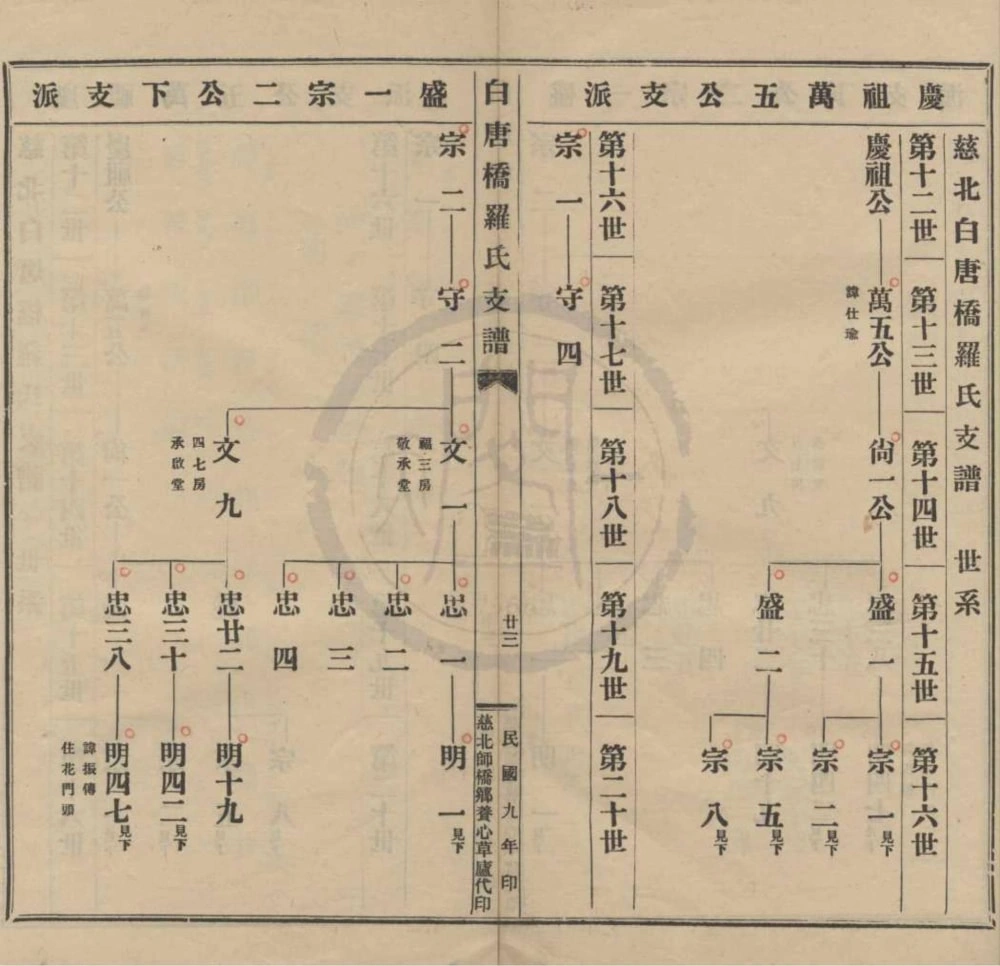 慈北白唐橋羅氏支譜 世系
慶祖萬五公支派
第十二世 第十三世 第十四世 第十五世 第十六世
慶祖公 萬五公 尙一公 盛一 宗一見下
諱仕瑜
宗二見下
盛二 宗五見下
宗八見下
第十六世 第十七世 第十八世 第十九世 第二十世
宗一 守四
白唐橋羅氏支譜 廿三 民國九年印
慈北師橋鄉養心草廬代印
盛一宗二公下支派
宗二 守二 文一 忠一 明一見下
福三房
敬承堂
忠二
忠三
忠四
文九 忠廿二 明十九
四七房
承啟堂
忠三十 明四二見下
忠三八 明四七見下
諱振傳
住花門頭